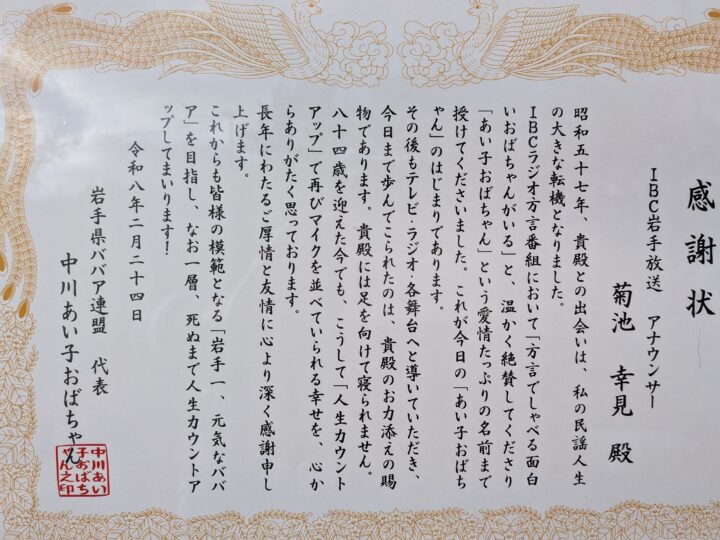 感謝状
IBC岩手放送 アナウンサー
菊池 幸見 殿
昭和五十七年、貴殿との出会いは、私の民謡人生
の大きな転機となりました。
IBCラジオ方言番組において「方言でしゃべる面白
いおばちゃんがいる」と、温かく絶賛してくださり
「あい子おばちゃん」という愛情たっぷりの名前まで
授けてくださいました。これが今日の「あい子おばち
ゃん」のはじまりであります。
その後もテレビ・ラジオ・各舞台へと導いていただき、
今日まで歩んでこられたのは、貴殿のお力添えの賜
物であります。貴殿には足を向けて寝られません。
八十四歳を迎えた今でも、こうして「人生カウント
アップ」で再びマイクを並べていられる幸せを、心か
らありがたく思っております。
長年にわたるご厚情と友情に心より深く感謝申し
上げます。
これからも皆様の模範となる「岩手一、元気なババ
ア」を目指し、なお一層、死ぬまで人生カウントア
ップしてまいります!
令和八年二月二十四日
岩手県ババア連盟 代表
中川あい子おばちゃん
中川あい
子おばち
ゃん之印